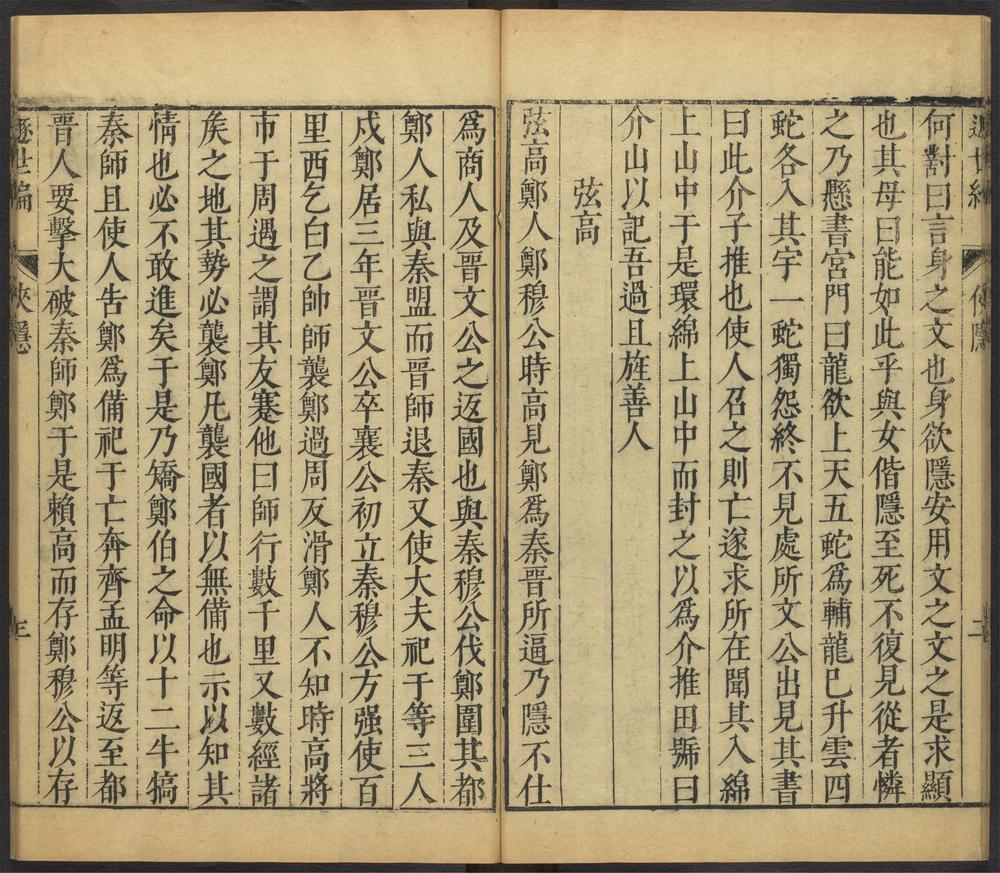 何對曰言身之文也身欲隱安用文之文之是求顯
也其母曰能如此乎與女偕隱至死不復見從者憐
之乃懸書宮門曰龍欲上天五蛇爲輔龍已升雲四
蛇各入其宇一蛇獨怨終不見處所文公出見其書
曰此介子推也使人召之則亡遂求所在聞其入綿
上山中于是環綿上山中而封之以爲介推田號曰
介山以記吾過且旌善人
弦高
弦高鄭人鄭穆公時高見鄭爲秦晉所逼乃隱不仕
爲商人及晉文公之返國也與秦穆公伐鄭圍其都
鄭人私與秦盟而晉師退秦又使大夫祀于等三人
戍鄭居三年晉文公卒襄公初立秦穆公方强使百
里西乞白乙帥師襲鄭過周反滑鄭人不知時高將
市于周遇之謂其友蹇他曰師行數千里又數經諸
矦之地其勢必襲鄭凡襲國者以無備也示以知其
情也必不敢進矣于是乃矯鄭伯之命以十二牛犒
秦師且使人告鄭爲備祀于亡奔齊孟明等返至都
晉人要擊大破秦師鄭于是賴高而存鄭穆公以存
遯世編 俠隱 三